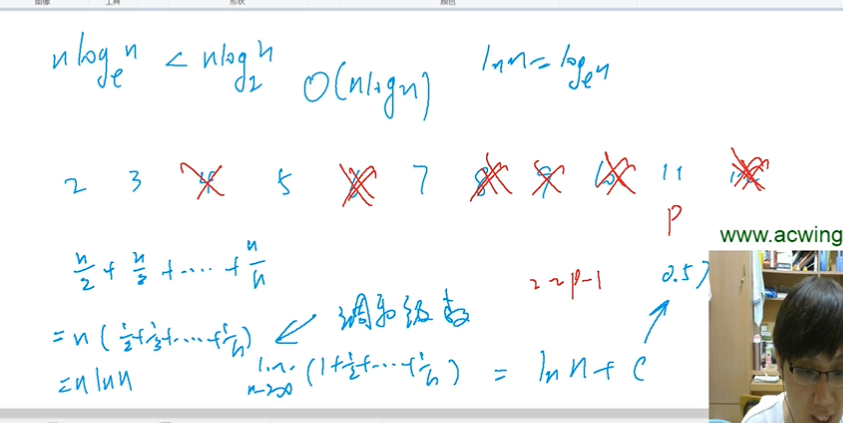 图像 工具 形状 颜色
n log_e n < n log_2 n O(nlogn) ln n = log_e n
2 3 4 5 6 7 8 9 10 11 12
p
www.acwing
n/2 + n/3 + ···· + n/n
2~p-1 0.57
= n ( 1/2+1/3+····+1/n ) ← 调和级数
= n ln n lim n→∞ ( 1+1/2+····+1/n ) = ln n + C